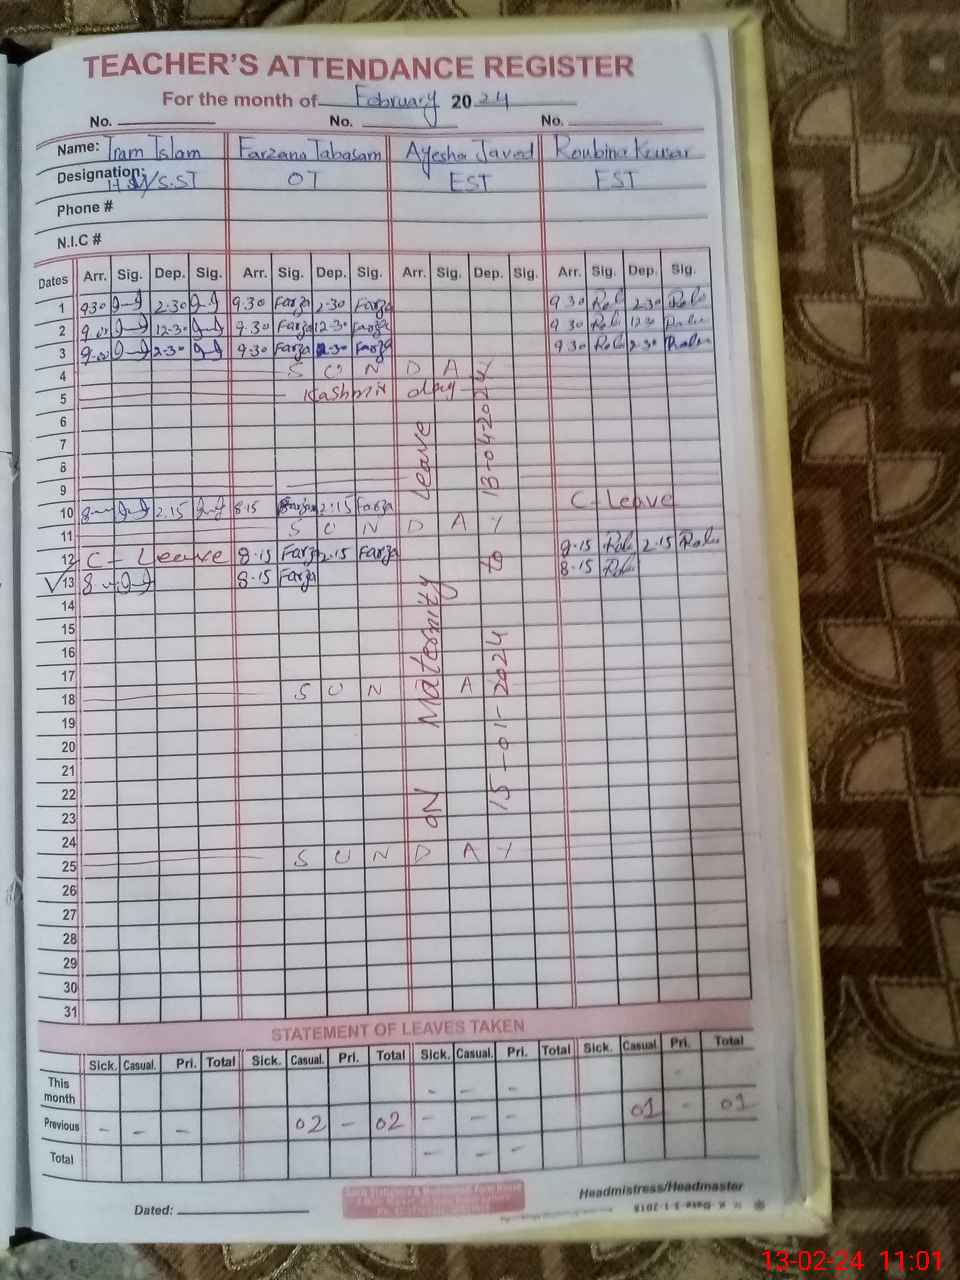 TEACHER'S ATTENDANCE REGISTER
For the month of February 2024
No. No. No.
Name: Iram Islam Farzana Tabasam Ayesha Javed Roubina Kausar
Designation: S.ST OT EST EST
Phone #
N.I.C #
Dates Arr. Sig. Dep. Sig. Arr. Sig. Dep. Sig. Arr. Sig. Dep. Sig. Arr. Sig. Dep. Sig.
1 930 2-30 9-30 Farza 2-30 Farza 9 30 2-30
2 12-30 9-30 Farza 12-30 Farza 9 30 12 30
3 2-30 9-30 Farza 2-30 Farza 9 30 2-30
4 S U N D A Y
5 Kashmir day
6
7
8
9
10 2:15 8-15 Farza 2:15 Farza C-Leave
11 S U N D A Y
12 C-Leave 8-15 Farza 2-15 Farza 8-15 2-15
13 8 8-15 Farza 8-15
14
15
16
17
18 S U N A
19
20
21
22
23
24
25 S U N D A Y
26
27
28
29
30
31
ON Maternity Leave
15-01-2024 to 13-04-2024
STATEMENT OF LEAVES TAKEN
Sick. Casual. Pri. Total Sick. Casual. Pri. Total Sick. Casual. Pri. Total Sick. Casual Pri. Total
This month - - - -
Previous - - - 02 - 02 - - - 01 - 01
Total - - -
Headmistress/Headmaster
Dated:
13-02-24 11:01